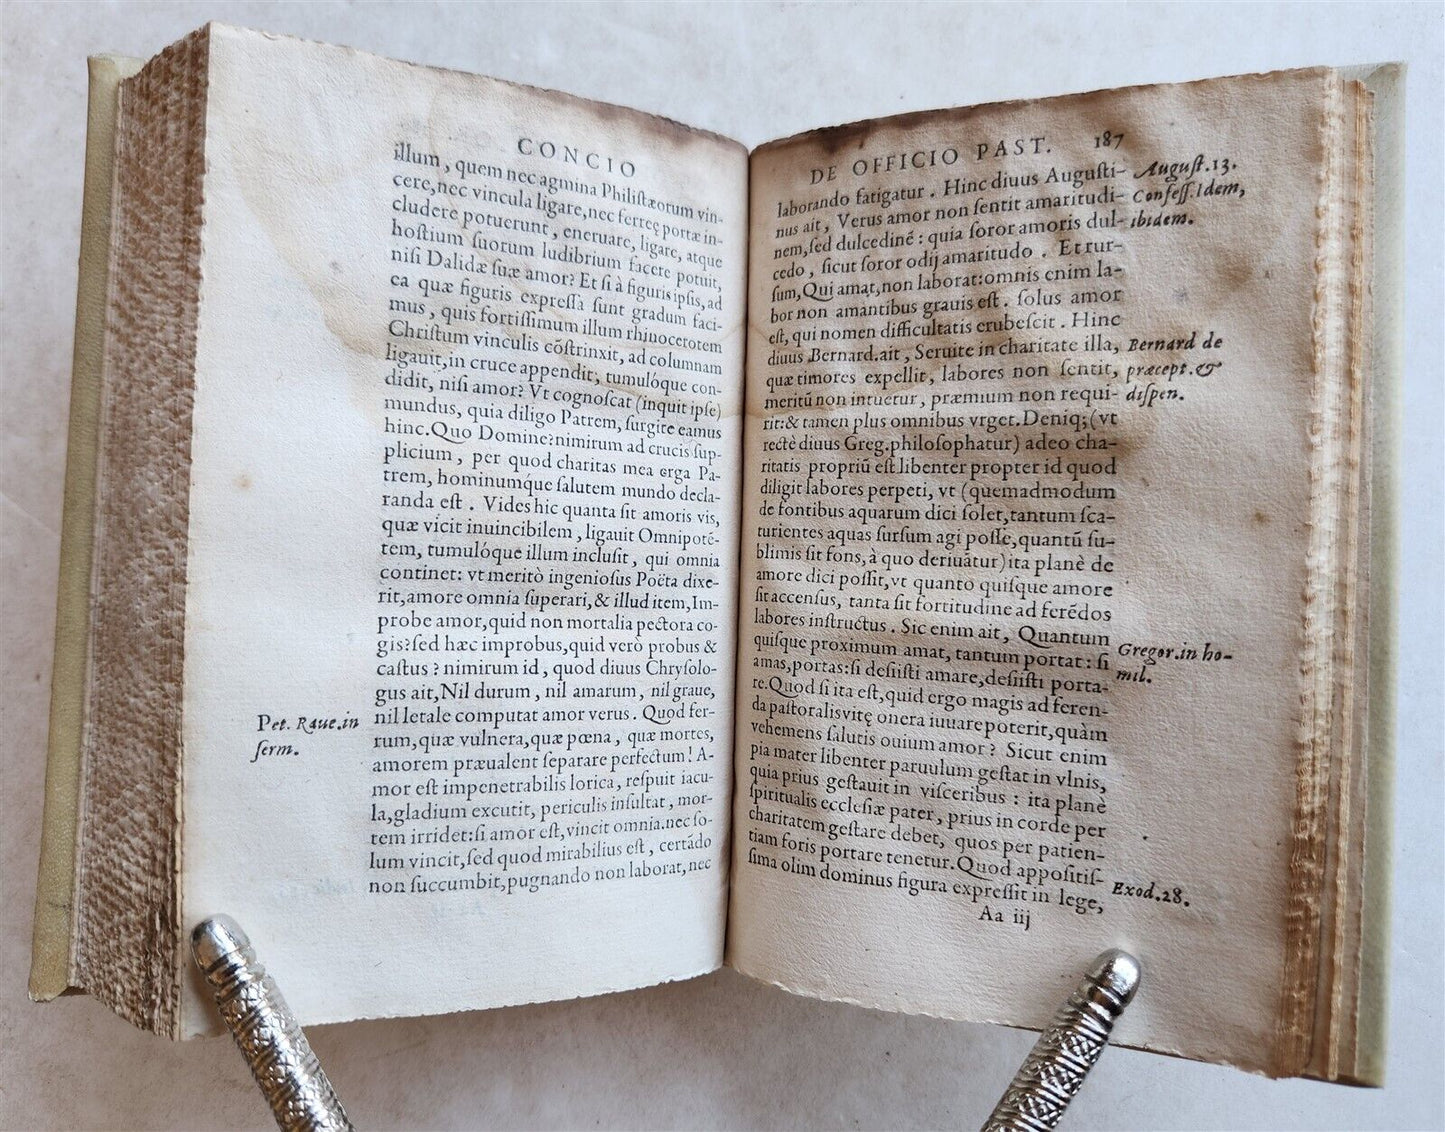 CONCIO
illum, quem nec agmina Philistæorum vin-
cere, nec vincula ligare, nec ferreę portæ in-
cludere potuerunt, eneruare, ligare, atque
hostium suorum ludibrium facere potuit,
nisi Dalidæ suæ amor? Et si à figuris ipsis, ad
ea quæ figuris expressa sunt gradum faci-
mus, quis fortissimum illum rhinocerotem
Christum vinculis cōstrinxit, ad columnam
ligauit, in cruce appendit, tumulóque con-
didit, nisi amor? Vt cognoscat (inquit ipse)
mundus, quia diligo Patrem, surgite eamus
hinc. Quo Domine? nimirum ad crucis sup-
plicium, per quod charitas mea erga Pa-
trem, hominumq́ue salutem mundo decla-
randa est. Vides hic quanta sit amoris vis,
quæ vicit inuincibilem, ligauit Omnipotē-
tem, tumulóque illum inclusit, qui omnia
continet: vt meritò ingeniosus Poëta dixe-
rit, amore omnia superari, & illud item, Im-
probe amor, quid non mortalia pectora co-
gis? sed hæc improbus, quid verò probus &
castus? nimirum id, quod diuus Chrysolo-
gus ait, Nil durum, nil amarum, nil graue,
nil letale computat amor verus. Quod fer-
rum, quæ vulnera, quæ pœna, quæ mortes,
amorem præualent separare perfectum! A-
mor est impenetrabilis lorica, respuit iacu-
la, gladium excutit, periculis insultat, mor-
tem irridet: si amor est, vincit omnia. nec so-
lum vincit, sed quod mirabilius est, certādo
non succumbit, pugnando non laborat, nec
Pet. Raue. in
serm.
DE OFFICIO PAST. 187
laborando fatigatur. Hinc diuus Augusti-
nus ait, Verus amor non sentit amaritudi-
nem, sed dulcedinē: quia soror amoris dul-
cedo, sicut soror odij amaritudo. Et rur-
sum, Qui amat, non laborat: omnis enim la-
bor non amantibus grauis est. solus amor
est, qui nomen difficultatis erubescit. Hinc
diuus Bernard. ait, Seruite in charitate illa,
quæ timores expellit, labores non sentit,
meritū non intuetur, præmium non requi-
rit: & tamen plus omnibus vrget. Deniq; (vt
rectè diuus Greg. philosophatur) adeo cha-
ritatis propriū est libenter propter id quod
diligit labores perpeti, vt (quemadmodum
de fontibus aquarum dici solet, tantum sca-
turientes aquas sursum agi posse, quantū su-
blimis sit fons, à quo deriuātur) ita planè de
amore dici possit, vt quanto quisque amore
sit accensus, tanta sit fortitudine ad ferēdos
labores instructus. Sic enim ait, Quantum
quisque proximum amat, tantum portat: si
amas, portas: si desiisti amare, desiisti porta-
re. Quod si ita est, quid ergo magis ad feren-
da pastoralis vitę onera iuuare poterit, quàm
vehemens salutis ouium amor? Sicut enim
pia mater libenter paruulum gestat in vlnis,
quia prius gestauit in visceribus: ita planè
spiritualis ecclesiæ pater, prius in corde per
charitatem gestare debet, quos per patien-
tiam foris portare tenetur. Quod appositis-
sima olim dominus figura expressit in lege,
Aa iij
August. 13.
Confess. Idem,
ibidem.
Bernard de
præcept. &
dispen.
Gregor. in ho-
mil.
Exod. 28.